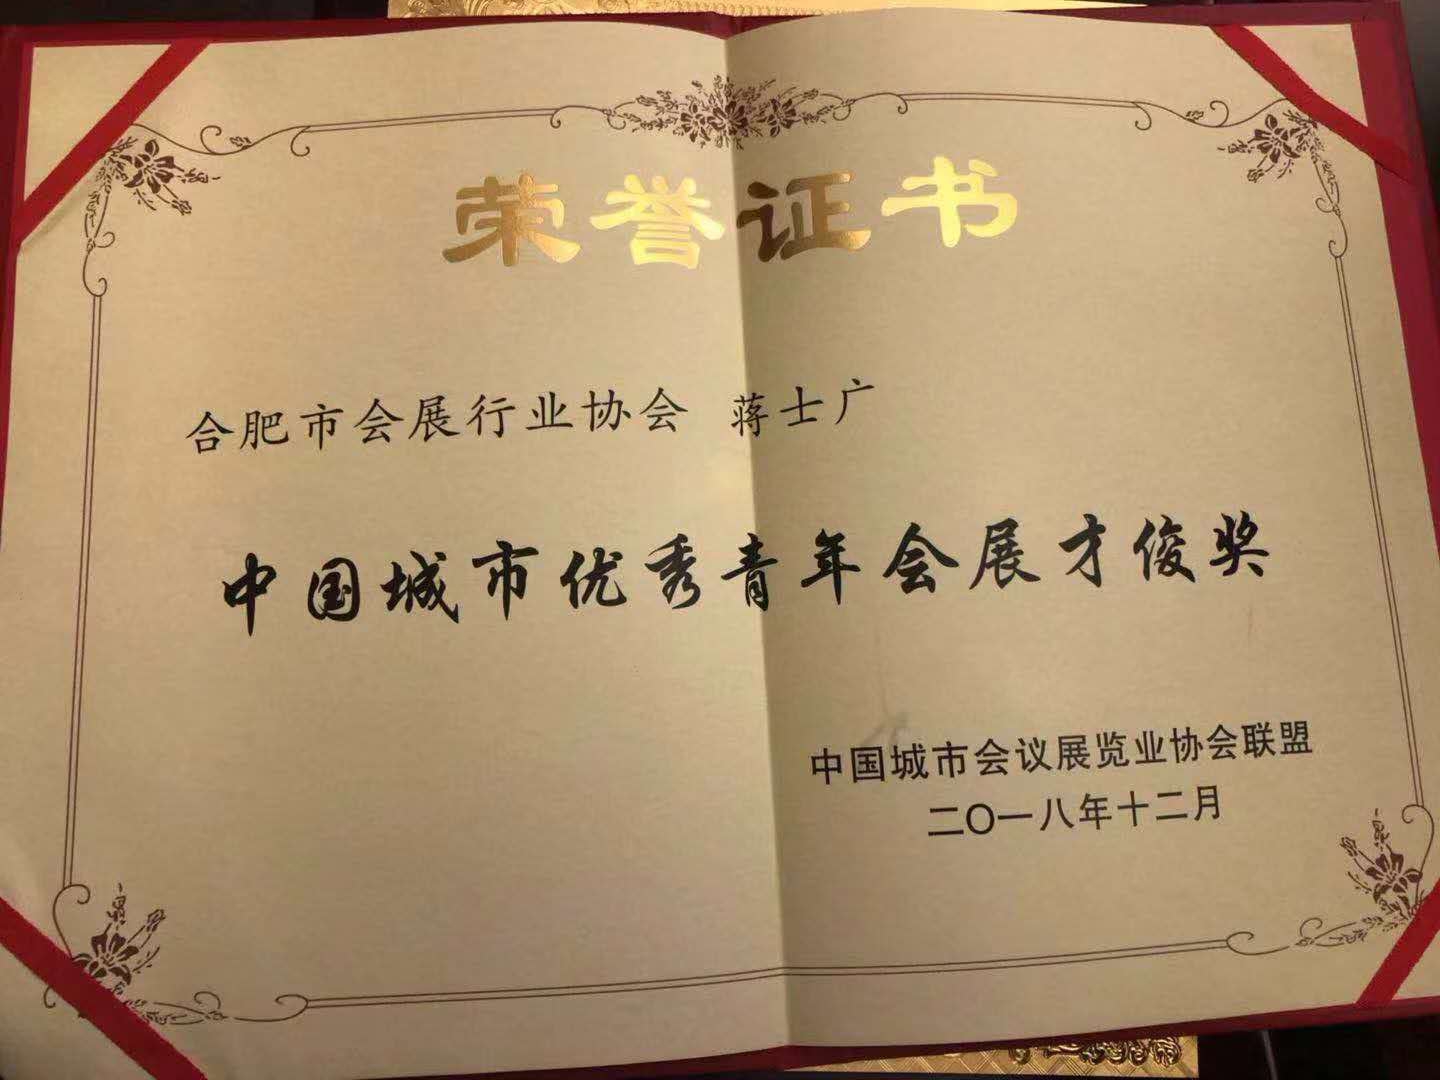 荣誉证书
合肥市会展行业协会 蒋士广
中国城市优秀青年会展才俊奖
中国城市会议展览业协会联盟
二〇一八年十二月